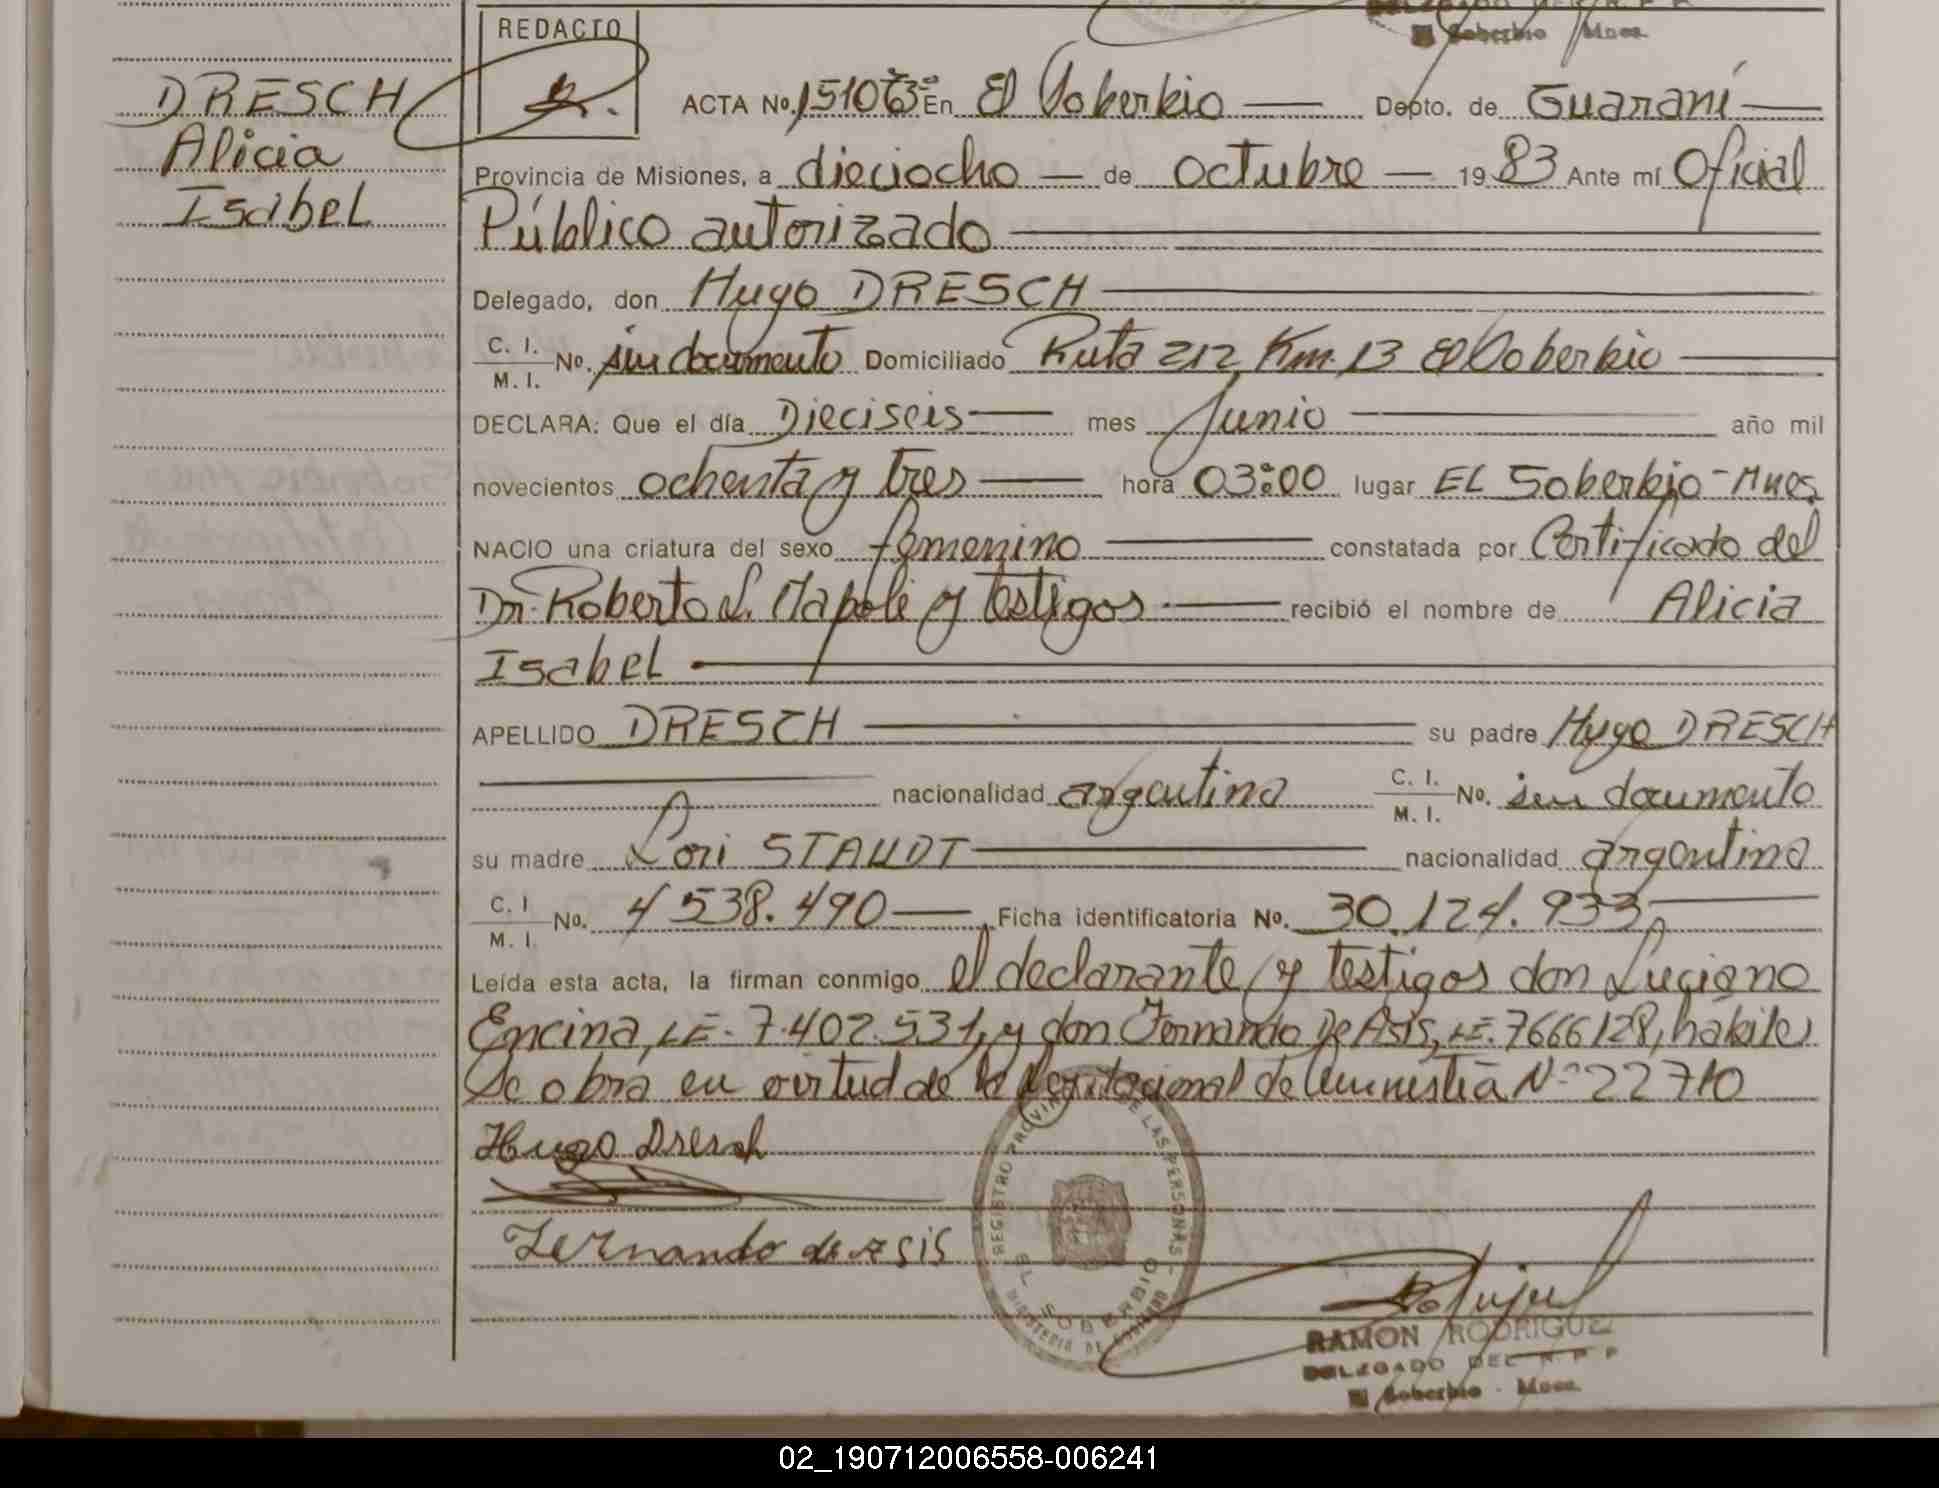 DELEGADO DEL R. P. P.
El Soberbio Mnes.
REDACTO
DRESCH
Alicia
Isabel
ACTA No. En El Soberbio Depto. de Guaraní
Provincia de Misiones, a dieciocho de octubre 1983 Ante mí Oficial
Público autorizado
Delegado, don Hugo DRESCH
C. I.
M. I. No. sin documento Domiciliado Ruta 212 Km. 13 El Soberbio
DECLARA: Que el día Dieciseis mes Junio año mil
novecientos ochenta y tres hora 03:00 lugar EL Soberbio - Mnes.
NACIO una criatura del sexo femenino constatada por Certificado del
Dr. Roberto L. Napole y testigos recibió el nombre de Alicia
Isabel
APELLIDO DRESCH su padre Hugo DRESCH
nacionalidad argentina C. I.
M. I. No. sin documento
su madre Lori STAUDT nacionalidad argentina
C. I.
M. I. No. 4538.490 Ficha identificatoria No. 30.124.933
Leída esta acta, la firman conmigo el declarante y testigos don Luciano
Encina, LE. 7.402.531, y don Fernando De Asis, LE. 7666128, hábiles
Se obra en virtud de la Ley Nacional de Amnistía N° 22710
Hugo Dresch
Fernando de asis
REGISTRO PROVINCIAL DE LAS PERSONAS
EL SOBERBIO
MINISTERIO DE GOBIERNO
RAMON RODRIGUEZ
DELEGADO DEL R. P. P.
El Soberbio - Mnes.
02_190712006558-006241